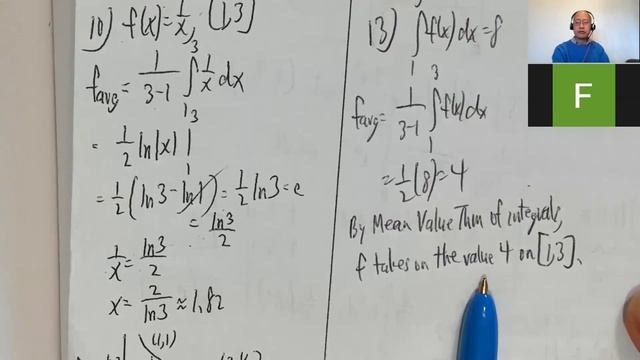 10) f(x)=1/x, [1,3]
f_avg = 1/(3-1) ∫_1^3 1/x dx
= 1/2 ln|x| |_1^3
= 1/2 (ln3 - ln1) = 1/2 ln3 = c
= ln3/2
1/x = ln3/2
x = 2/ln3 ≈ 1.82
(1,1)
13) ∫_1^3 f(x)dx = 8
f_avg = 1/(3-1) ∫_1^3 f(x)dx
= 1/2 (8) = 4
By Mean Value Thm of integrals,
f takes on the value 4 on [1,3].
F